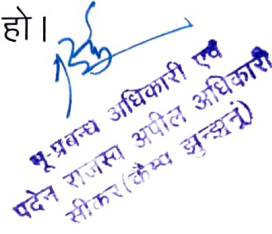 हो।
भू-प्रबन्ध अधिकारी एवं
पदेन राजस्व अपील अधिकारी
सीकर (कैम्प झुन्झुनूं)